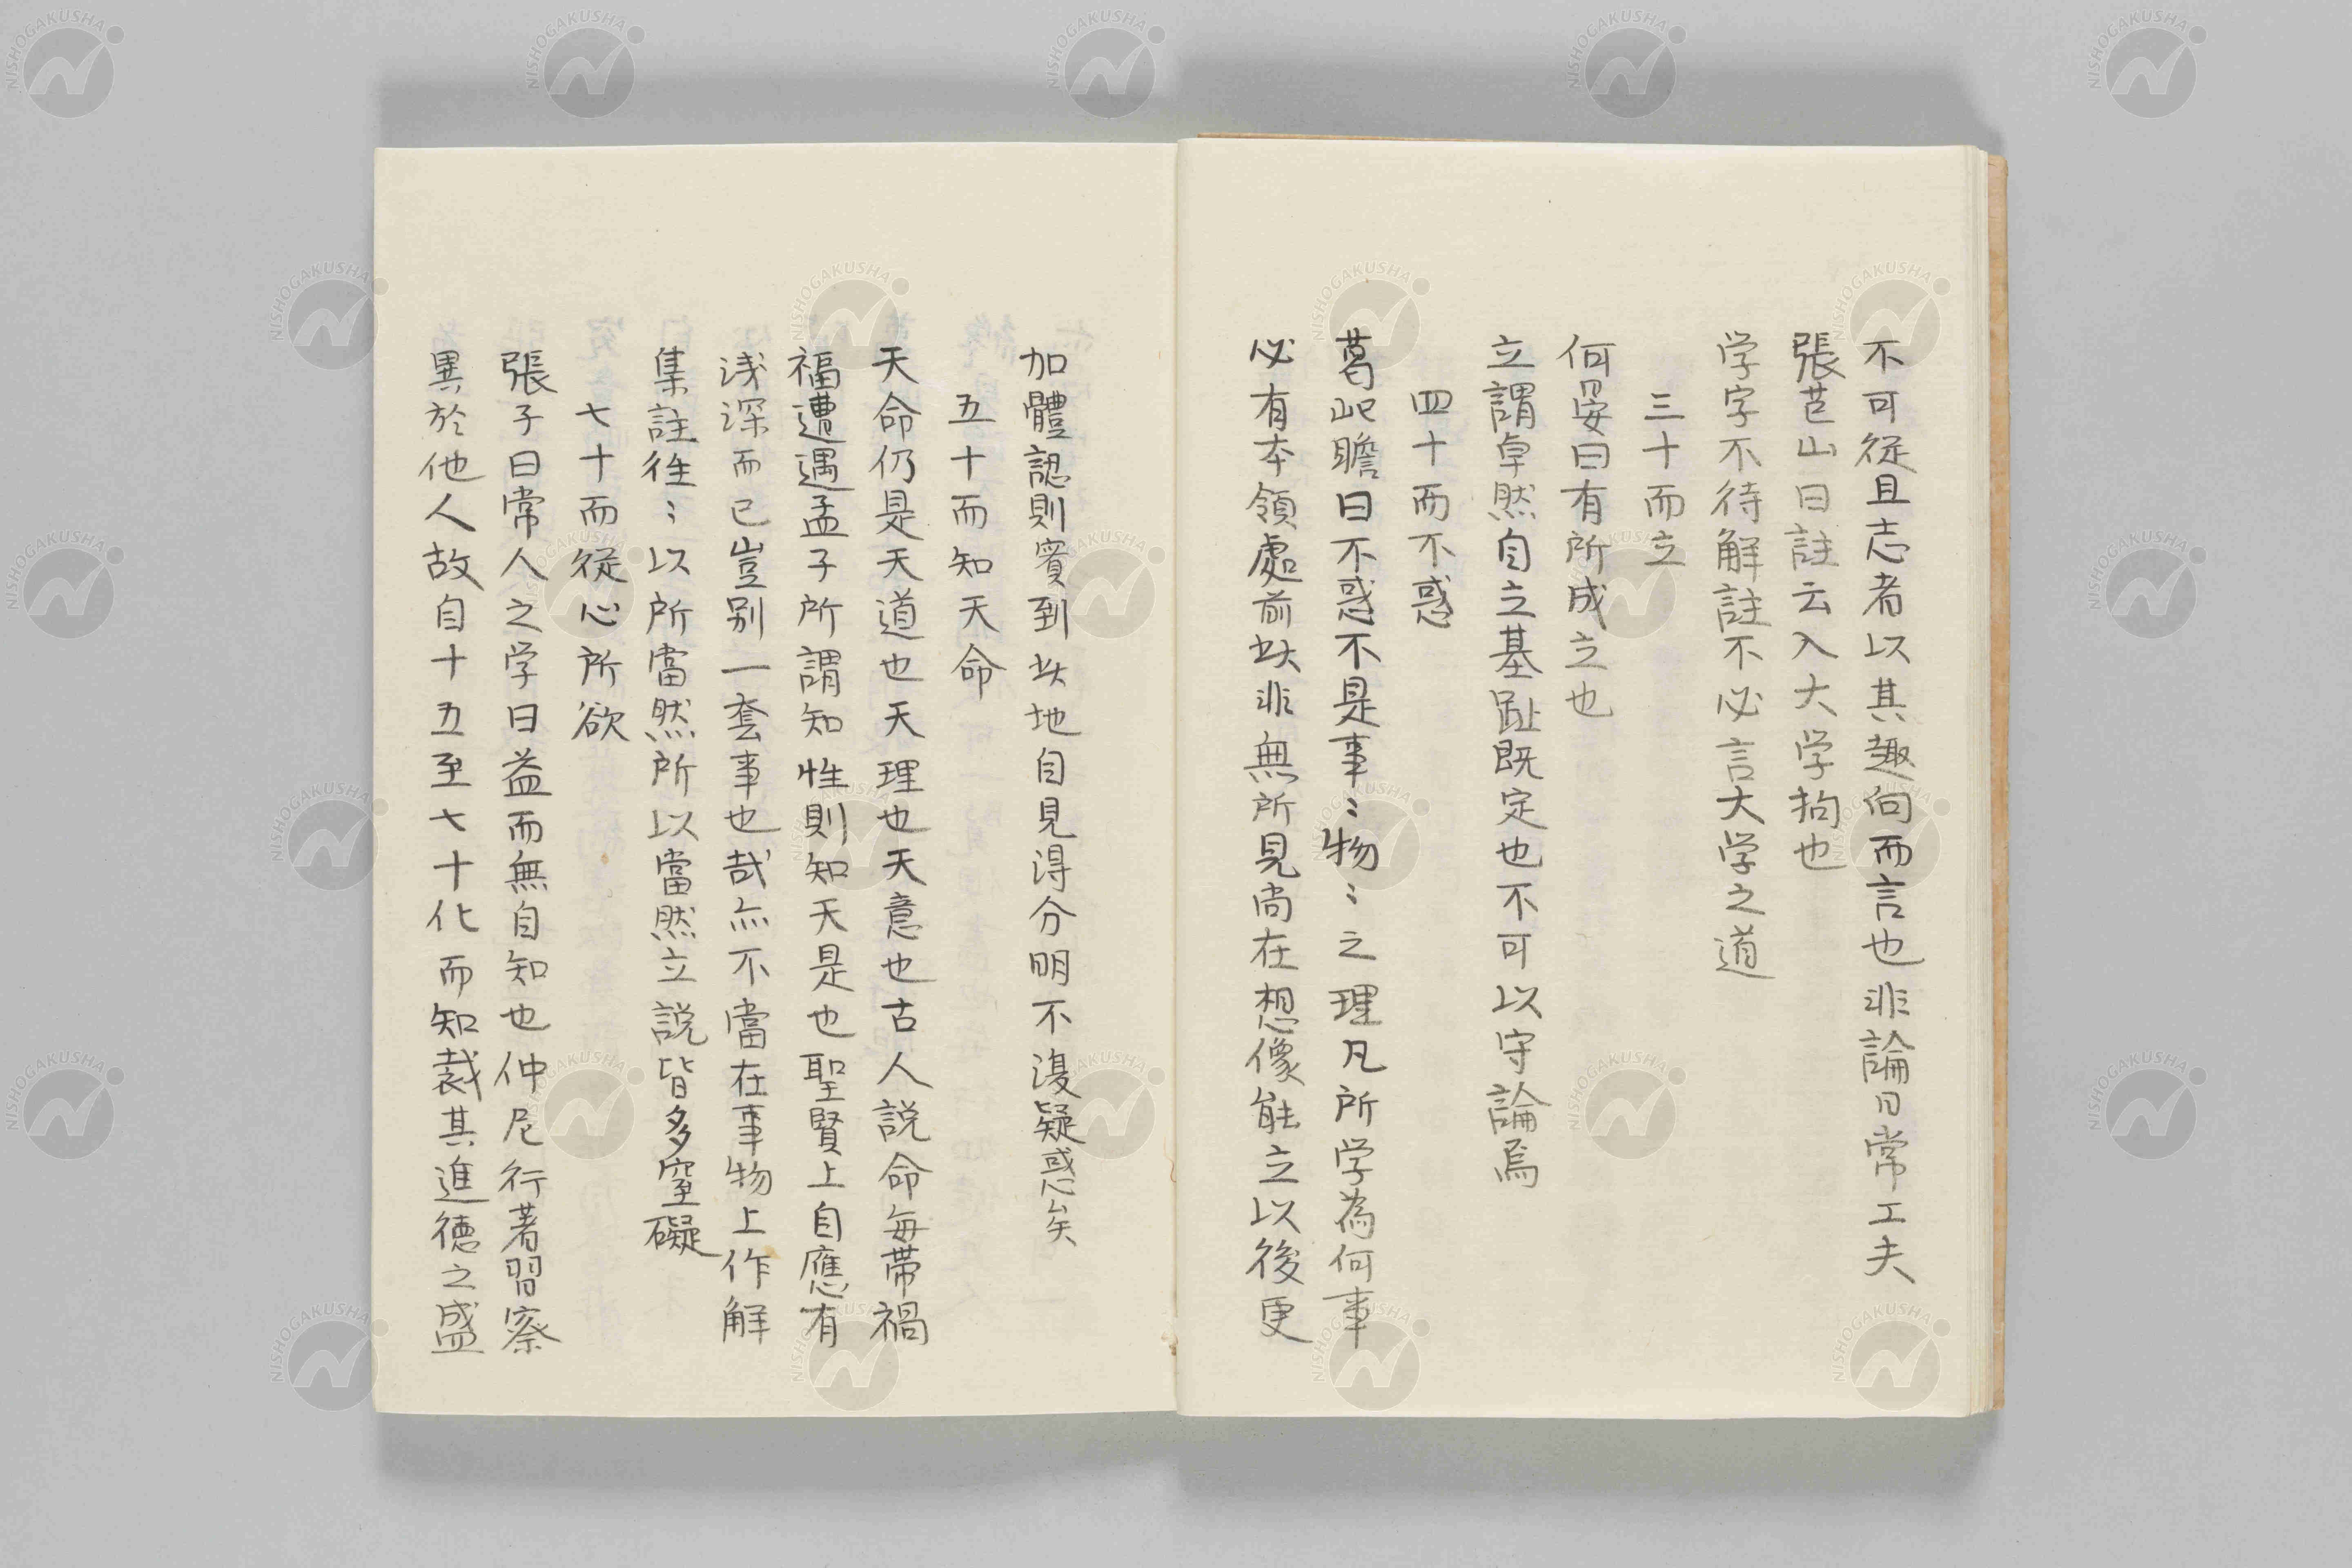 不可従且志者以其趣向而言也非論日常工夫
張芭山曰註云入大学拘也
学字不待解註不必言大学之道
三十而立
何晏曰有所成立也
立謂卓然自立基趾既定也不可以守論焉
四十而不惑
葛屺瞻曰不惑不是事〻物〻之理凡所学為何事
必有本領處前此非無所見尚在想像能立以後更
加體認則實到此地自見得分明不復疑惑矣
五十而知天命
天命仍是天道也天理也天意也古人説命毎帯禍
福遭遇孟子所謂知性則知天是也聖賢上自應有
浅深而已豈別一套事也哉亦不當在事物上作解
集註往〻以所當然所以當然立説皆多窒礙
七十而従心所欲
張子曰常人之学日益而無自知也仲尼行著習察
異於他人故自十五至七十化而知裁其進徳之盛
NISHOGAKUSHA